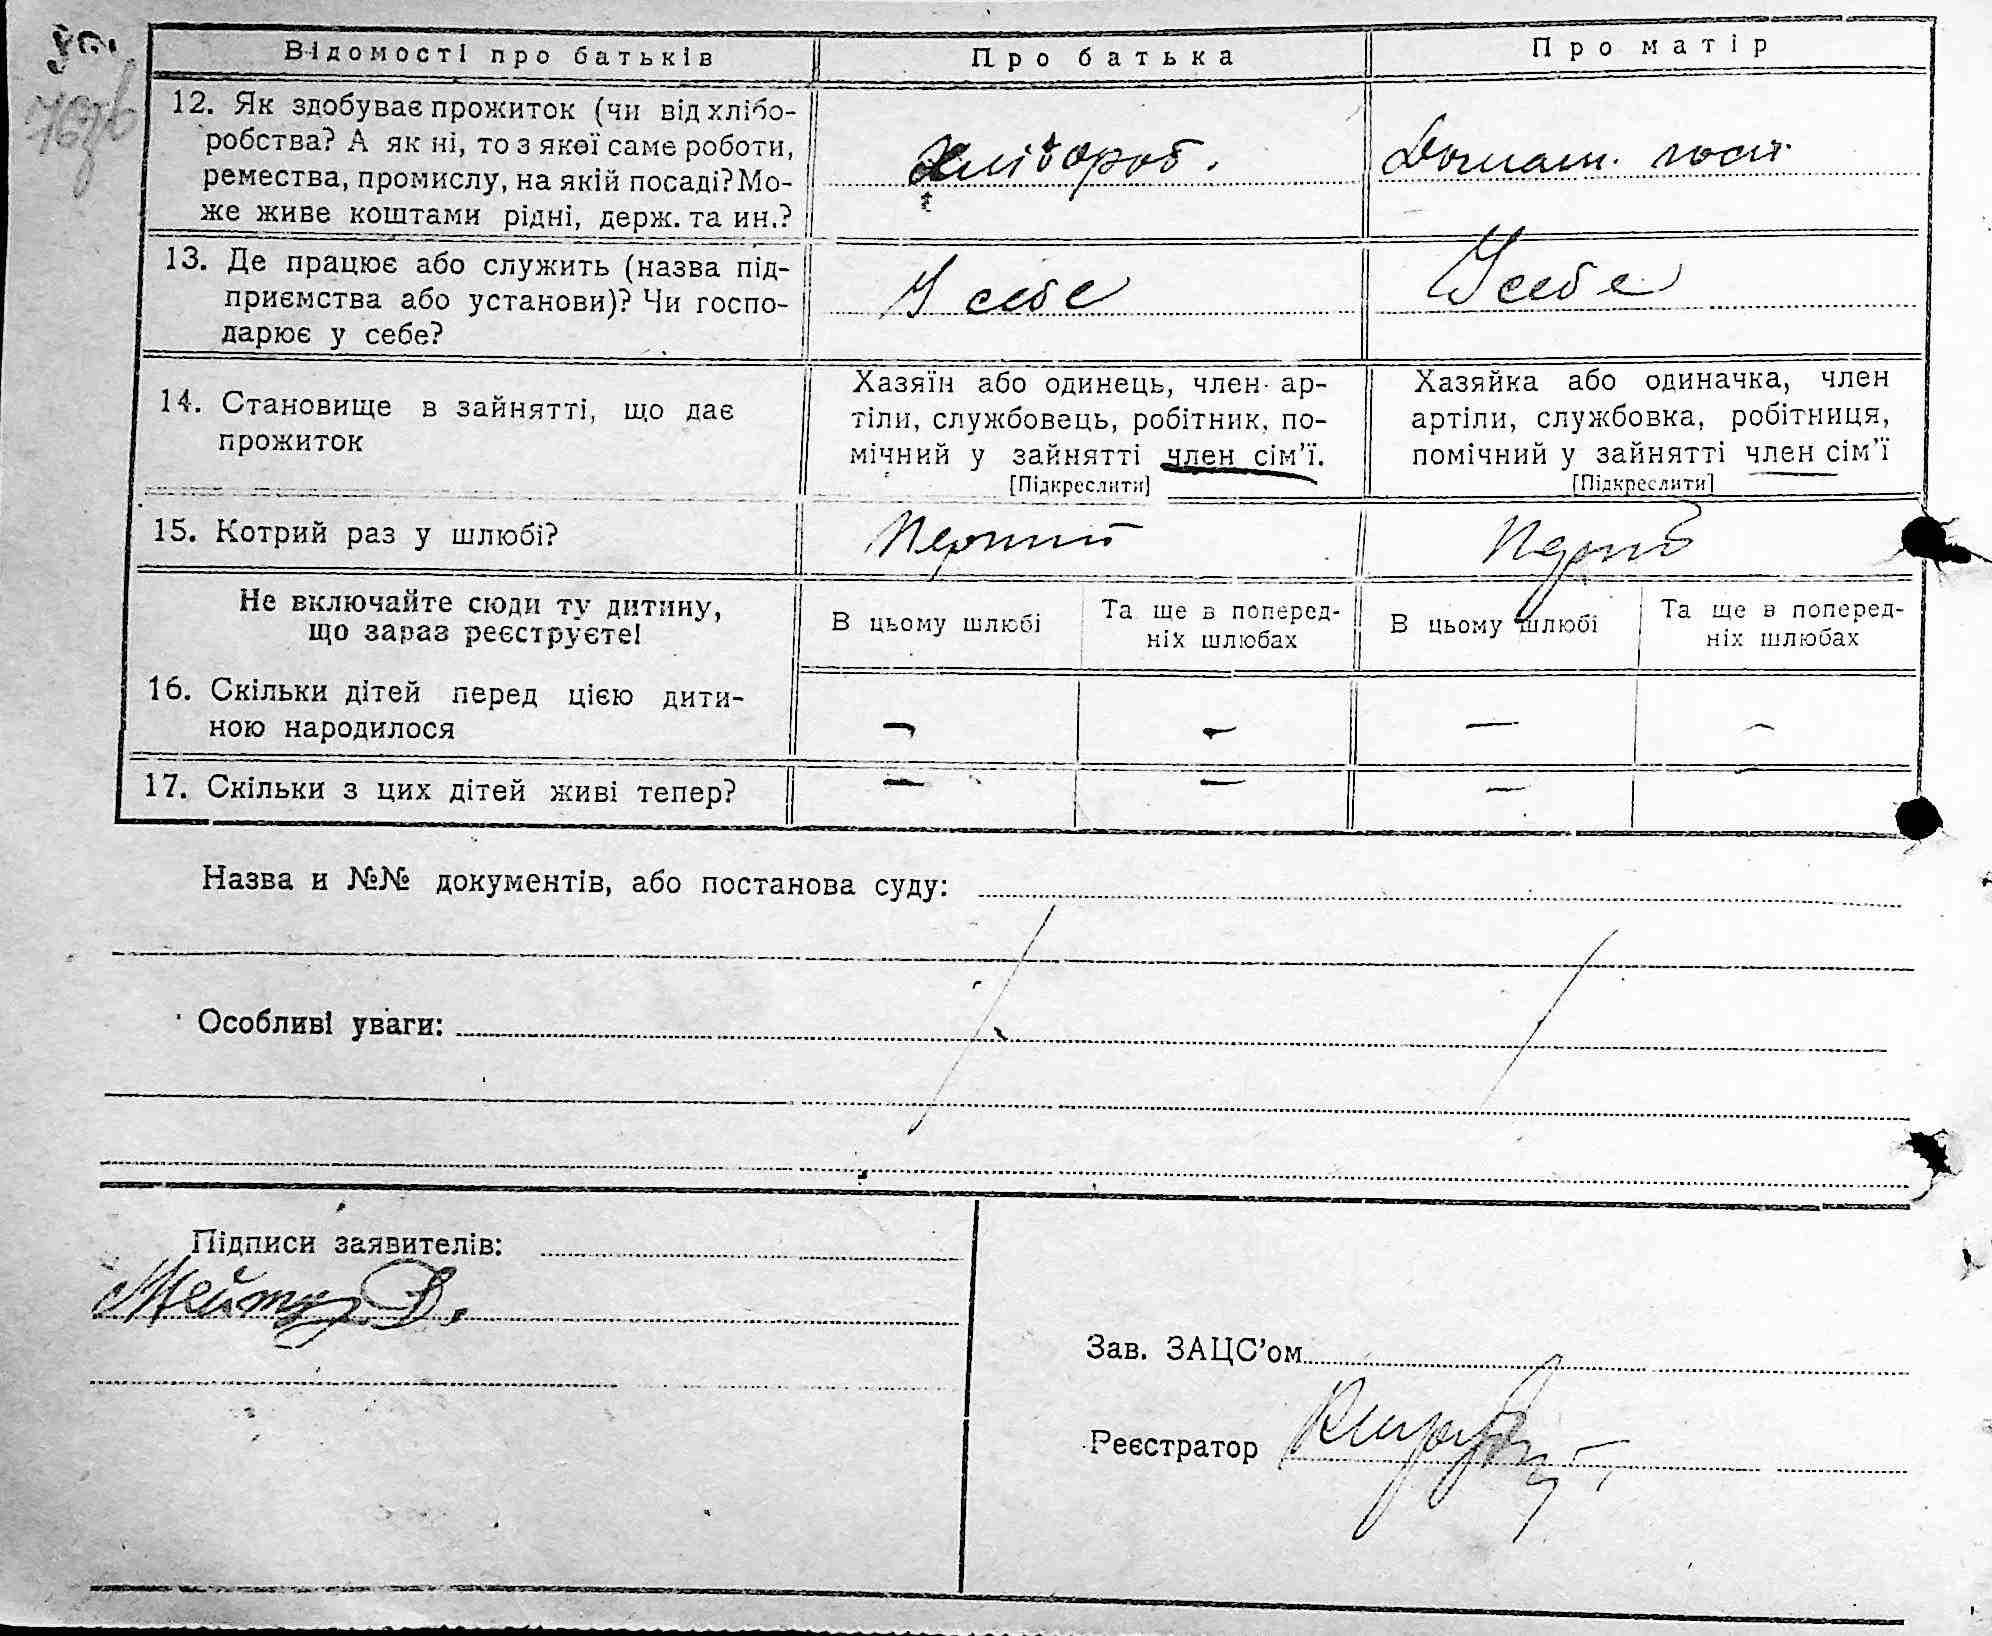 Відомості про батьків
Про батька
Про матір
12. Як здобуває прожиток (чи від хлібо-
робства? А як ні, то з якої саме роботи,
ремества, промислу, на якій посаді? Мо-
же живе коштами рідні, держ. та ин.?
Хлібороб.
Домаш. госп.
13. Де працює або служить (назва під-
приємства або установи)? Чи госпо-
дарює у себе?
У себе
У себе
14. Становище в зайнятті, що дає
прожиток
Хазяїн або одинець, член ар-
тіли, службовець, робітник, по-
мічний у зайнятті член сім’ї.
[Підкреслити]
Хазяйка або одиначка, член
артіли, службовка, робітниця,
помічний у зайнятті член сім’ї
[Підкреслити]
15. Котрий раз у шлюбі?
Перший
Не включайте сюди ту дитину,
що зараз реєструєте!
В цьому шлюбі
Та ще в поперед-
ніх шлюбах
В цьому шлюбі
Та ще в поперед-
ніх шлюбах
16. Скільки дітей перед цією дити-
ною народилося
— — — —
17. Скільки з цих дітей живі тепер?
— — — —
Назва и №№ документів, або постанова суду:
Особливі уваги:
Підписи заявителів:
Зав. ЗАЦС’ом
Реєстратор